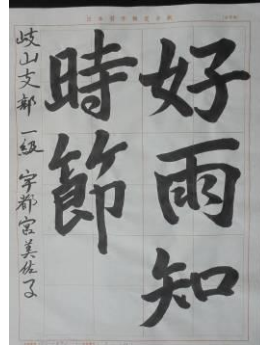 好雨知
時節
岐山支部 一級 宇都宮美佐子